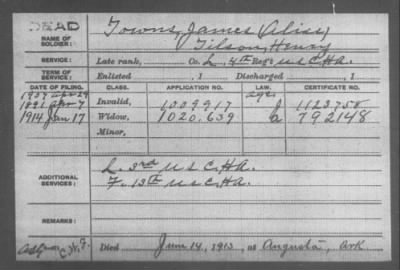 DEAD
NAME OF SOLDIER: Towns, James (Alias)
Tilson, Henry
SERVICE: Late rank, Co. L, 4th Reg't U S C. HA.
TERM OF SERVICE: Enlisted , 1 Discharged , 1
DATE OF FILING. CLASS. APPLICATION NO. LAW. CERTIFICATE NO.
1891 Apr 7 Invalid, 1.009.917 J 1123758
1914 Jan 17 Widow, 1020.639 a 792148
Minor,
ADDITIONAL SERVICES: L. 3rd U S C. HA.
F. 13th U S C. HA.
REMARKS:
Died June 14, 1913, at Augusta, Ark.